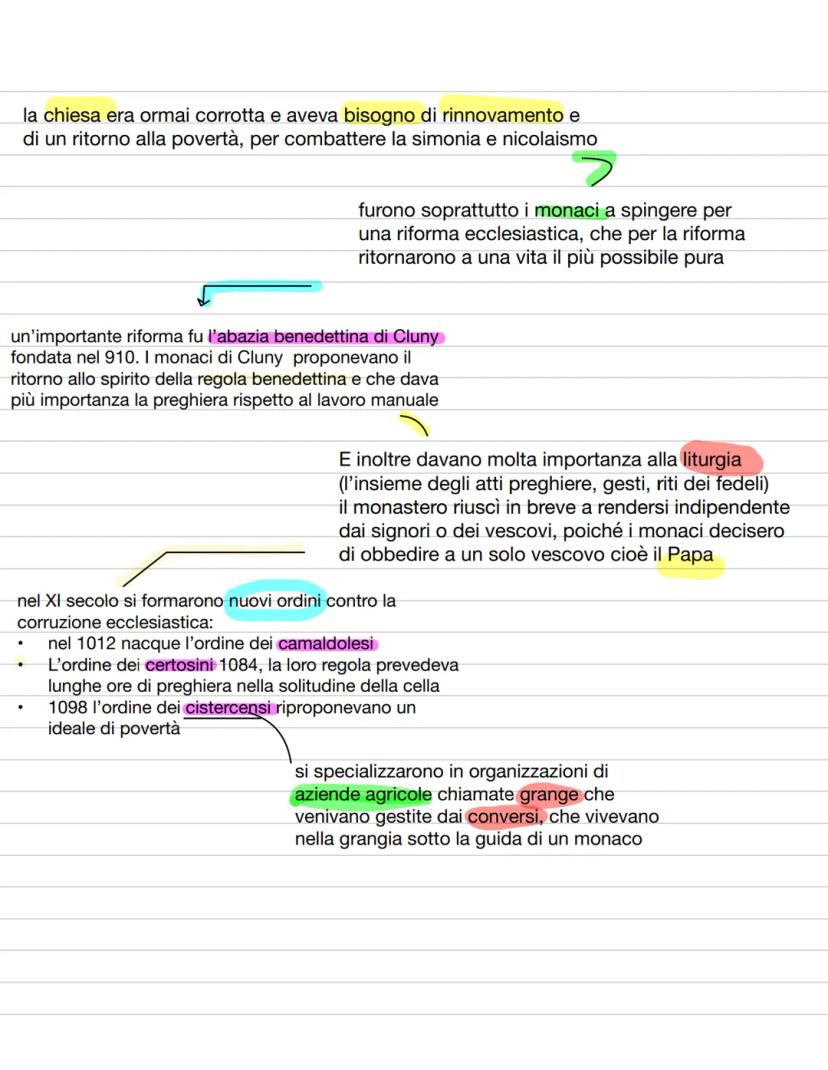 la chiesa era ormai corrotta e aveva bisogno di rinnovamento e
di un ritorno alla povertà, per combattere la simonia e nicolaismo
furono soprattutto i monaci a spingere per
una riforma ecclesiastica, che per la riforma
ritornarono a una vita il più possibile pura
un'importante riforma fu l'abazia benedettina di Cluny
fondata nel 910. I monaci di Cluny proponevano il
ritorno allo spirito della regola benedettina e che dava
più importanza la preghiera rispetto al lavoro manuale
E inoltre davano molta importanza alla liturgia
(l'insieme degli atti preghiere, gesti, riti dei fedeli)
il monastero riuscì in breve a rendersi indipendente
dai signori o dei vescovi, poiché i monaci decisero
di obbedire a un solo vescovo cioè il Papa
nel XI secolo si formarono nuovi ordini contro la
corruzione ecclesiastica:
• nel 1012 nacque l'ordine dei camaldolesi
• L'ordine dei certosini 1084, la loro regola prevedeva
lunghe ore di preghiera nella solitudine della cella
• 1098 l'ordine dei cistercensi riproponevano un
ideale di povertà
si specializzarono in organizzazioni di
aziende agricole chiamate grange che
venivano gestite dai conversi, che vivevano
nella grangia sotto la guida di un monaco